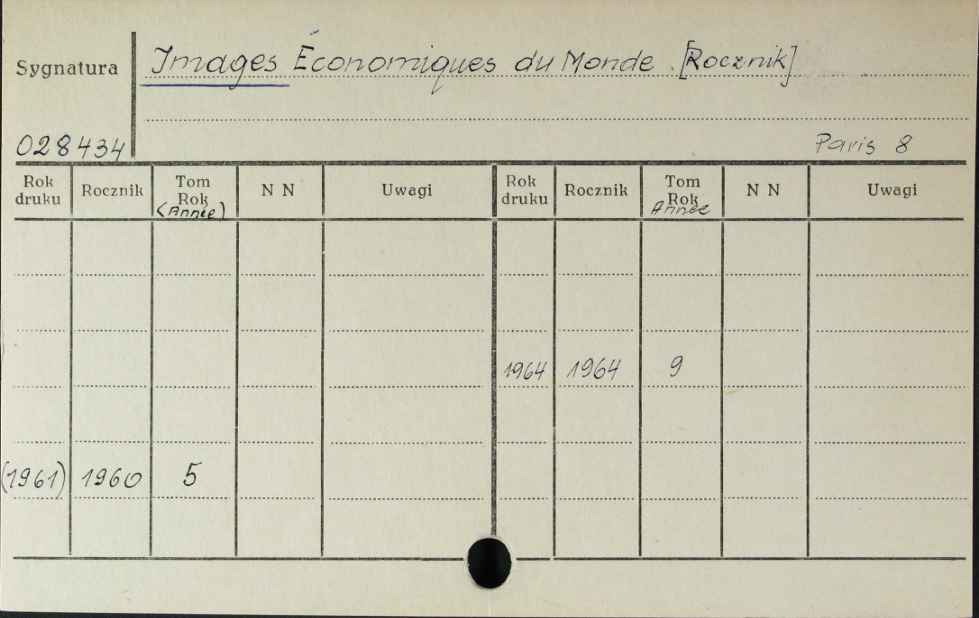 Sygnatura Images Économiques du Monde. [Rocznik]
028434 Paris 8
Rok druku Rocznik Tom Rok (Année) N N Uwagi Rok druku Rocznik Tom Rok Année N N Uwagi
1964 1964 9
(1961) 1960 5